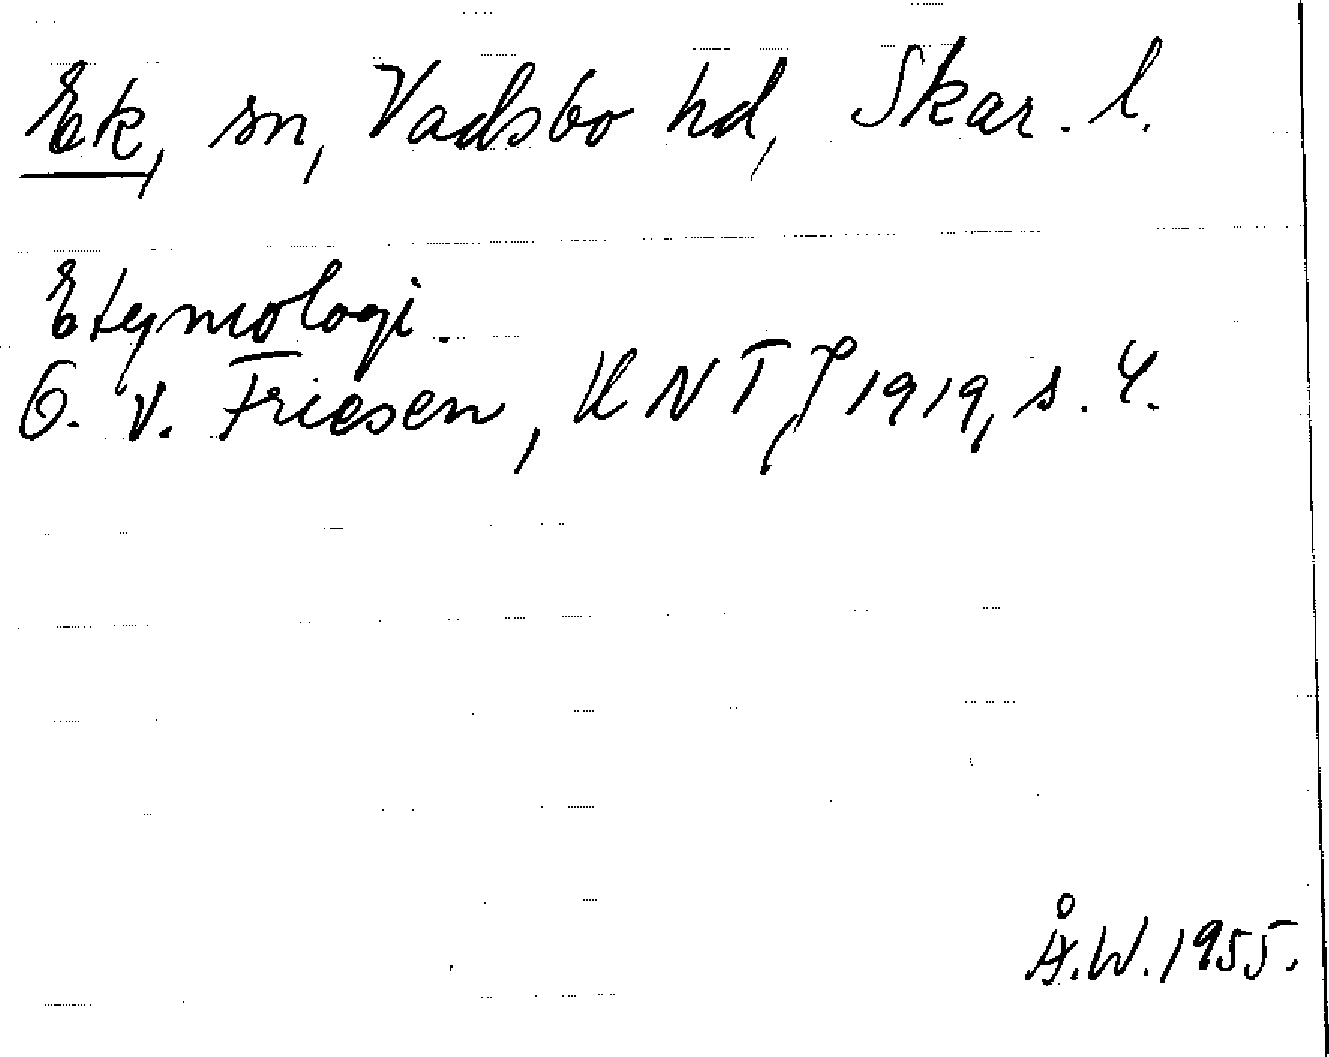 Ek, sn, Vadsbo hd, Skar. l.
Etymologi.
O. v. Friesen, KNTJ 1919, s. 4.
Å.W. 1955.